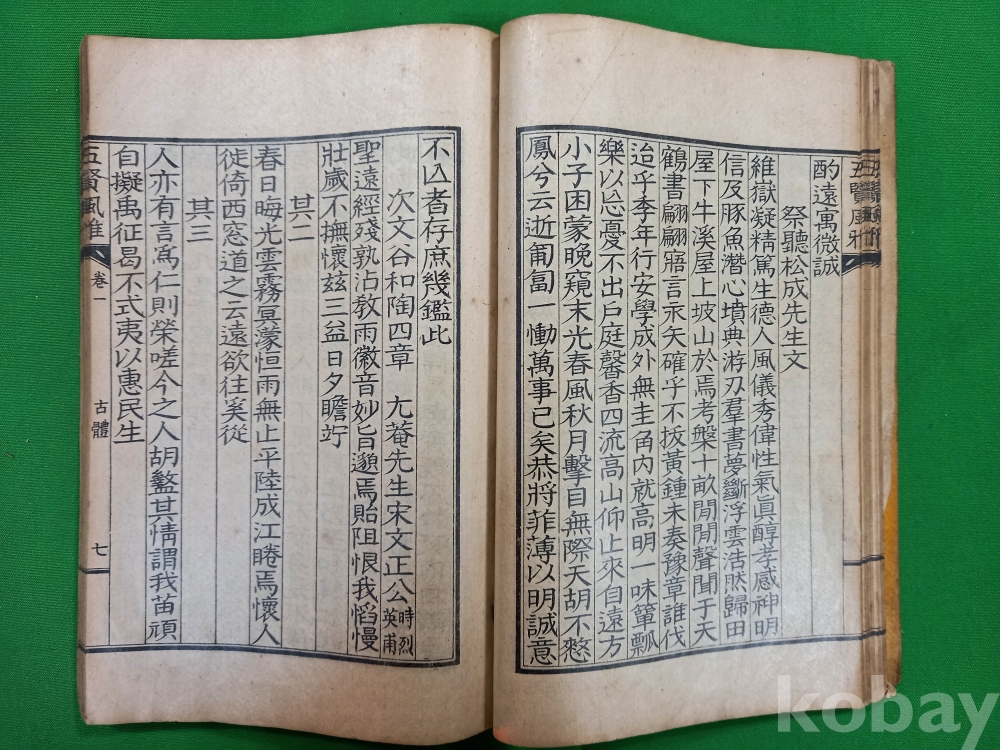 五賢風雅
酌遠寓微誠
祭聽松成先生文
維嶽凝精篤生德人風儀秀偉性氣眞醇孝感神明
信及豚魚潛心墳典游刃羣書夢斷浮雲浩然歸田
屋下牛溪屋上坡山於焉考槃十畝閒閒聲聞于天
鶴書翩翩寤言永矢確乎不拔黃鍾未奏豫章誰伐
迨乎季年行安學成外無圭角內就高明一味簞瓢
樂以忘憂不出戶庭馨香四流高山仰止來自遠方
小子困蒙晚窺末光春風秋月擊目無際天胡不憗
鳳兮云逝匍匐一慟萬事已矣恭將菲薄以明誠意
不亡者存庶幾鑑此
次文谷和陶四章 尤菴先生宋文正公 時烈 英甫
聖遠經殘孰沾敎雨徽音妙旨邈焉貽阻恨我慆慢
壯歲不撫懷玆三益日夕瞻竚
其二
春日晦光雲霧冥蒙恒雨無止平陸成江睠焉懷人
徙倚西窓道之云遠欲往奚從
其三
人亦有言爲仁則榮嗟今之人胡盭其情謂我苗頑
自擬禹征曷不式夷以惠民生
五賢風雅 卷一 古體 七
kobay